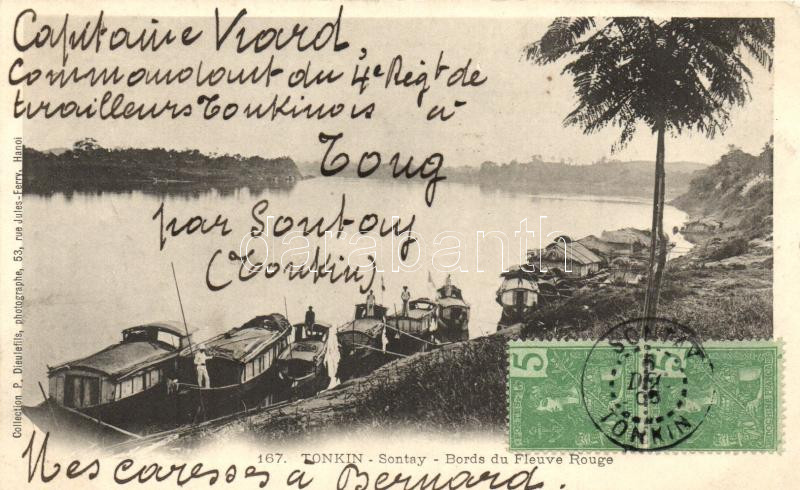 Capitaine Viard,
Commandant du 4e Régt de
tirailleurs Tonkinois à
Tong
par Sontay
(Tonkin)
Collection P. Dieulefils, photographe, 53, rue Jules-Ferry, Hanoi
darabanth
5
5
SONTAY
DEC
TONKIN
167. TONKIN - Sontay - Bords du Fleuve Rouge
Mes caresses à Bernard.